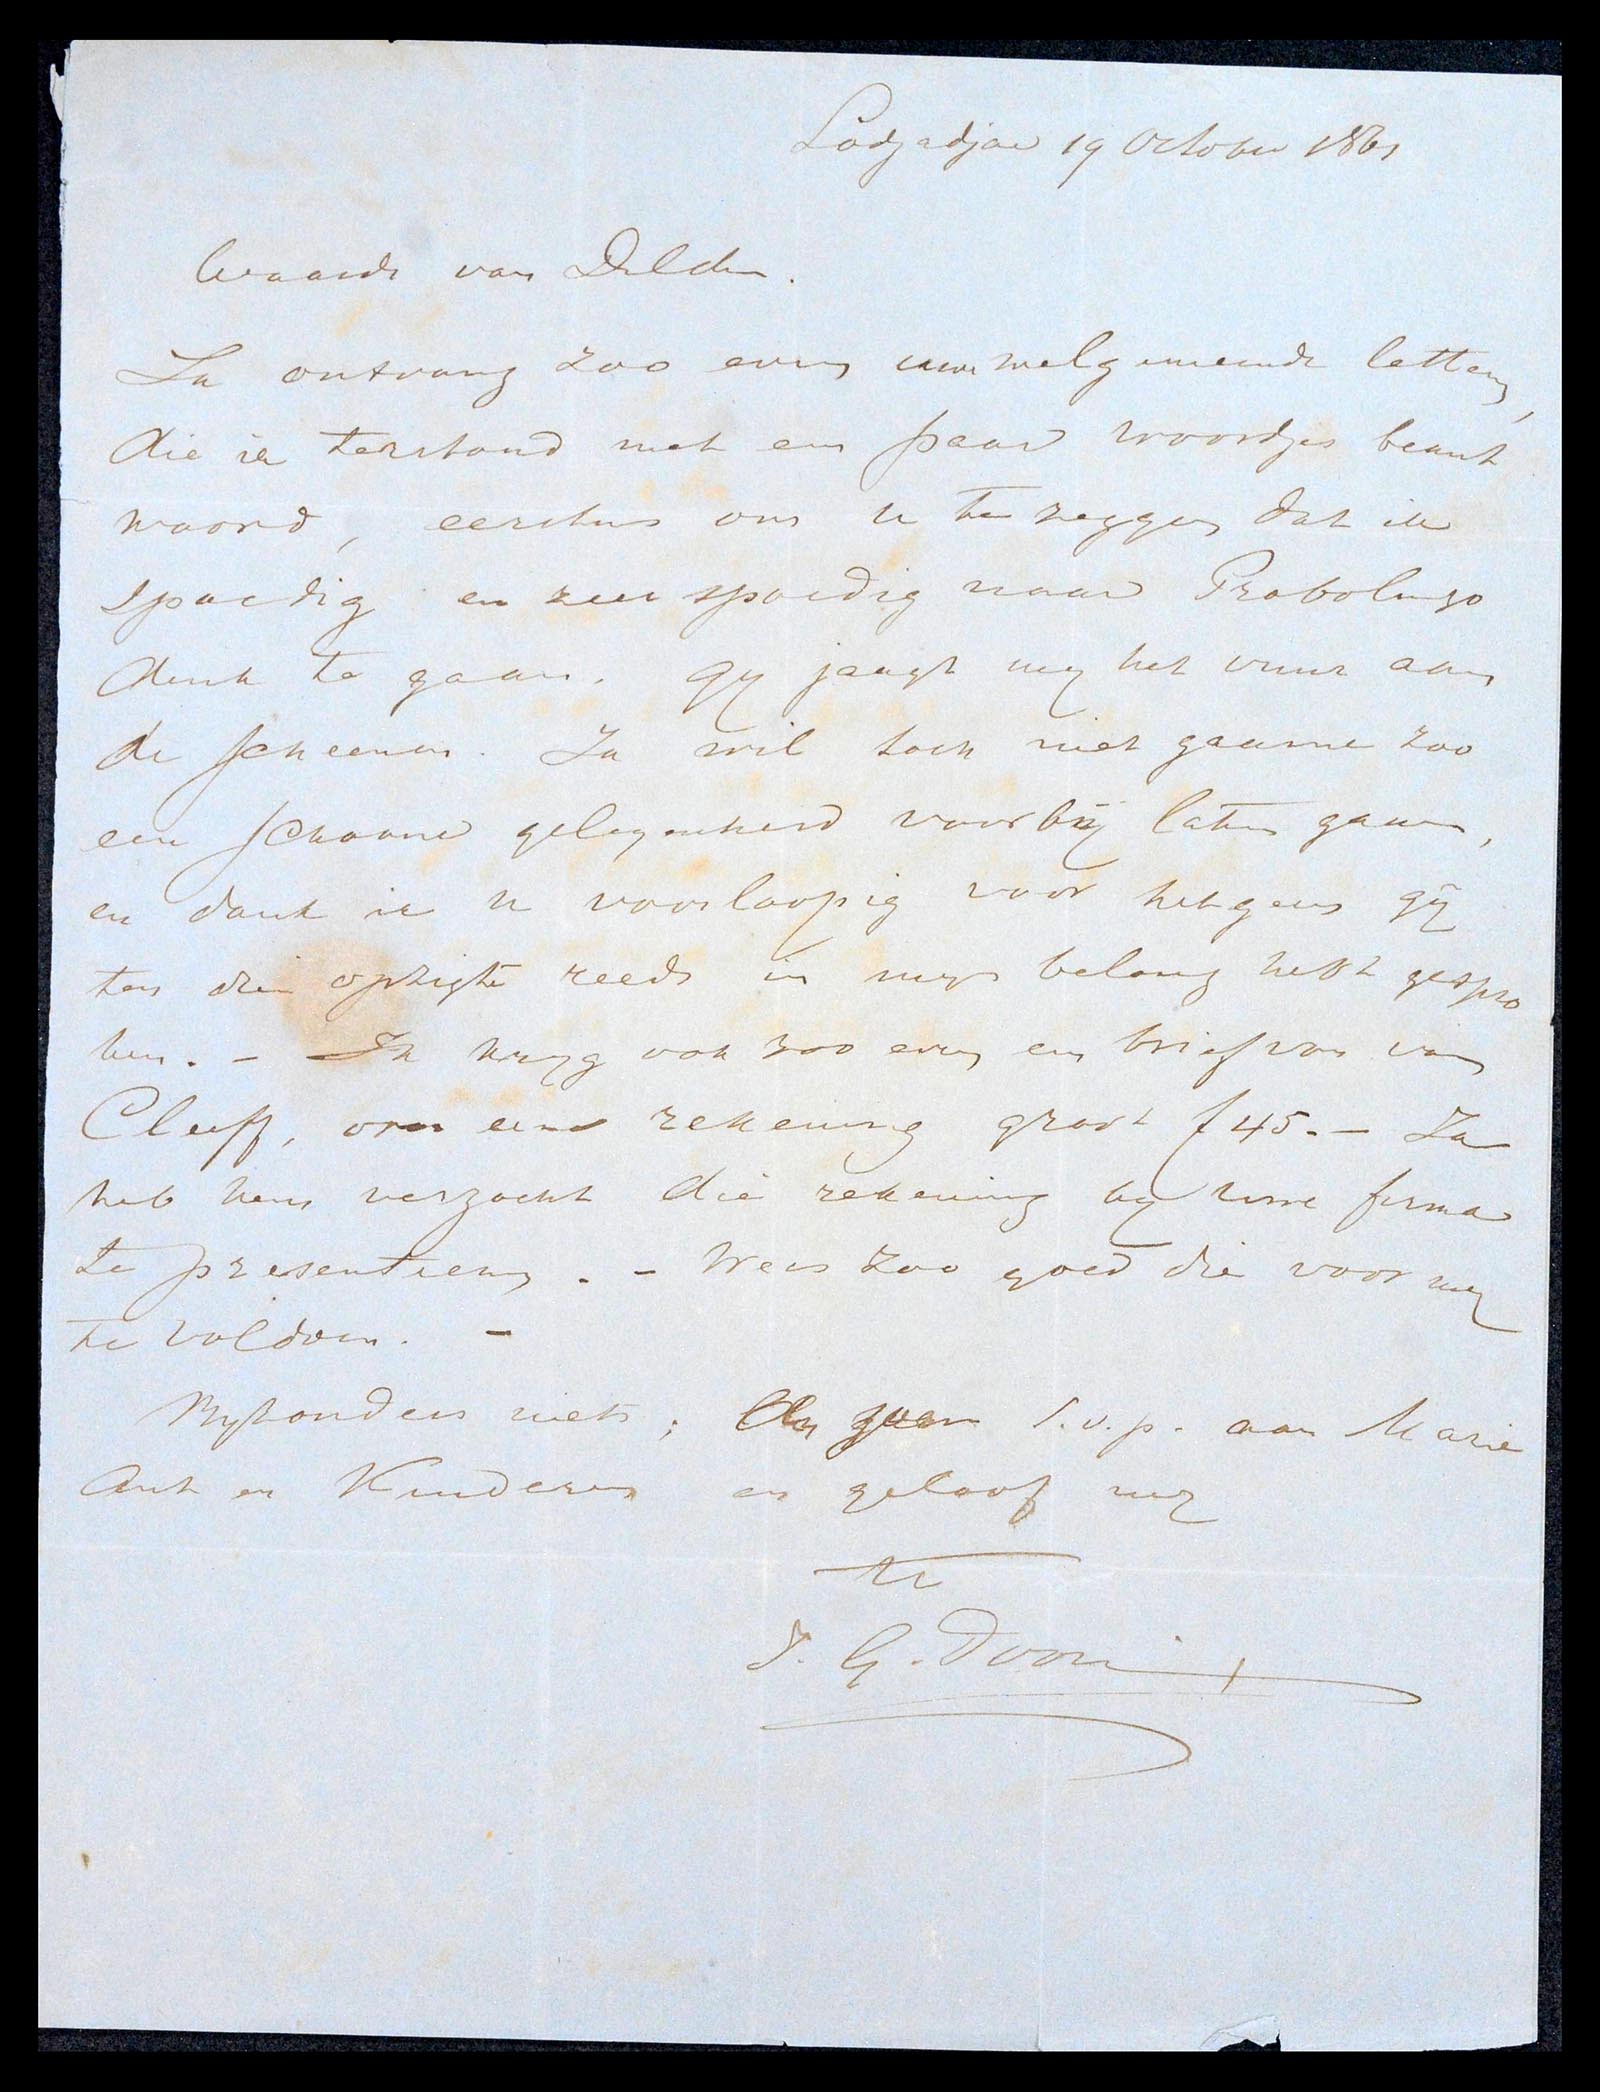 19 October 1861
Waarde van Delden.
Ik ontvang zoo even uwe welgemeende letteren,
die ik terstond met een paar woordjes beant
woord, eerstens om u te zeggen dat ik
spoedig en zeer spoedig naar Probolingo
denk te gaan. Gy jaagt my het vuur aan
de scheenen. Ik wil toch niet gaarne zoo
een schoone gelegenheid voorbij laten gaan,
en dank ik u voorloopig voor hetgeen gij
ten dien opzigte reeds in myn belang hebt gespro
ken. - Ik kryg ook zoo even een brief van van
Cleeff, om eene rekening groot f 45.- Ik
heb hem verzocht die rekening by uwe firma
te presenteeren. - Wees zoo goed die voor my
te voldoen. -
Byzonders niets; s.v.p. aan Marie
Ant en Kinderen en geloof my
tt
J. G.